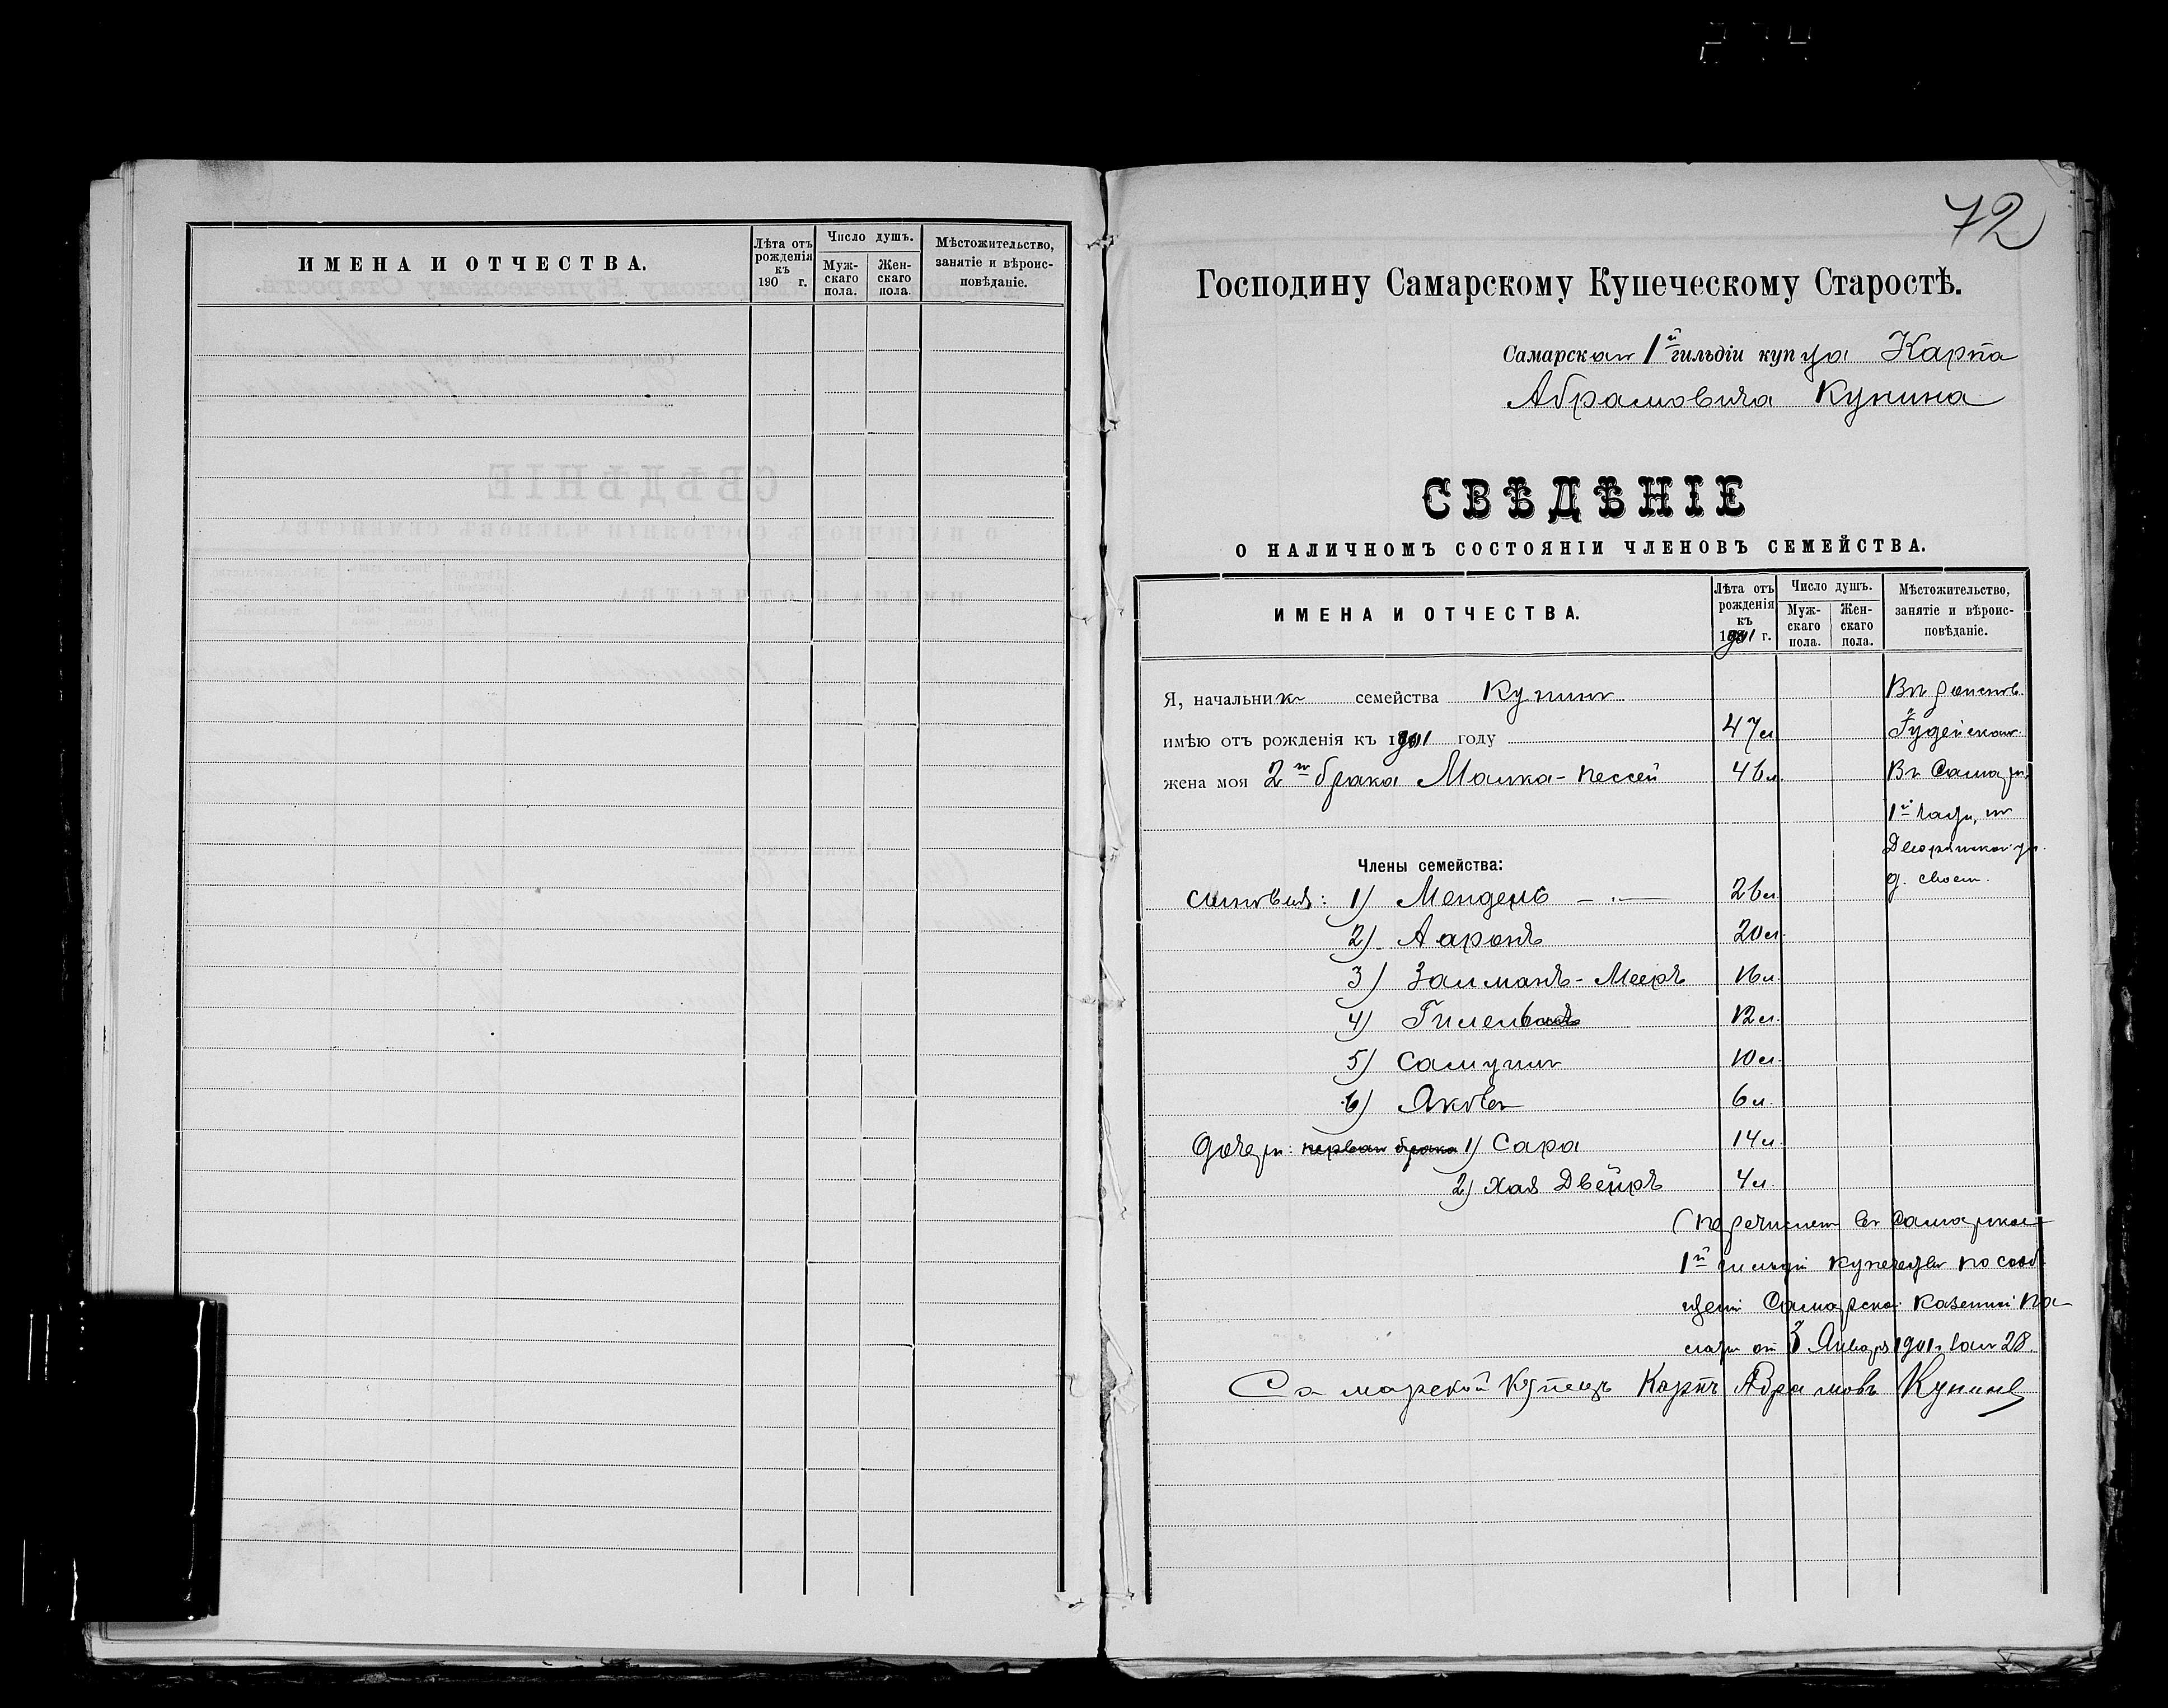 ИМЕНА И ОТЧЕСТВА.
Лѣта отъ рожденія къ 190 г.
Число душъ.
Мужскаго пола.
Женскаго пола.
Мѣстожительство, занятіе и вѣроисповѣданіе.
72
Господину Самарскому Купеческому Старостѣ.
Самарскаго 1й гильдіи купца Карпа
Абрамовича Кунина
СВѢДѢНІЕ
О НАЛИЧНОМЪ СОСТОЯНІИ ЧЛЕНОВЪ СЕМЕЙСТВА.
ИМЕНА И ОТЧЕСТВА.
Лѣта отъ рожденія къ 1901 г.
Число душъ.
Мужскаго пола.
Женскаго пола.
Мѣстожительство, занятіе и вѣроисповѣданіе.
Я, начальникъ семейства Кунинъ
имѣю отъ рожденія къ 1901 году 47 л Іудейскаго
жена моя 2го брака Малка-Пессей 46 л. Въ Самарѣ
1й части, по
Дворянской ул.
Члены семейства: д. своем.
Сыновья: 1) Мендель 26 л
2) Ааронъ 20 л
3) Залманъ-Мееръ 16 л.
4) 12 л.
5) Самуилъ 10 л.
6) Яковъ 6 л.
Дочери: перваго брака 1) Сара 14 л.
2) Хая Двейръ 4 л.
(перечислен въ Самарское
1й гильдіи купечество по сооб-
щенію Самарской Казенной Па-
латы от 3 Января 1901 г. за № 28.
Самарской Купецъ Карпъ Абрамовъ Кунинъ